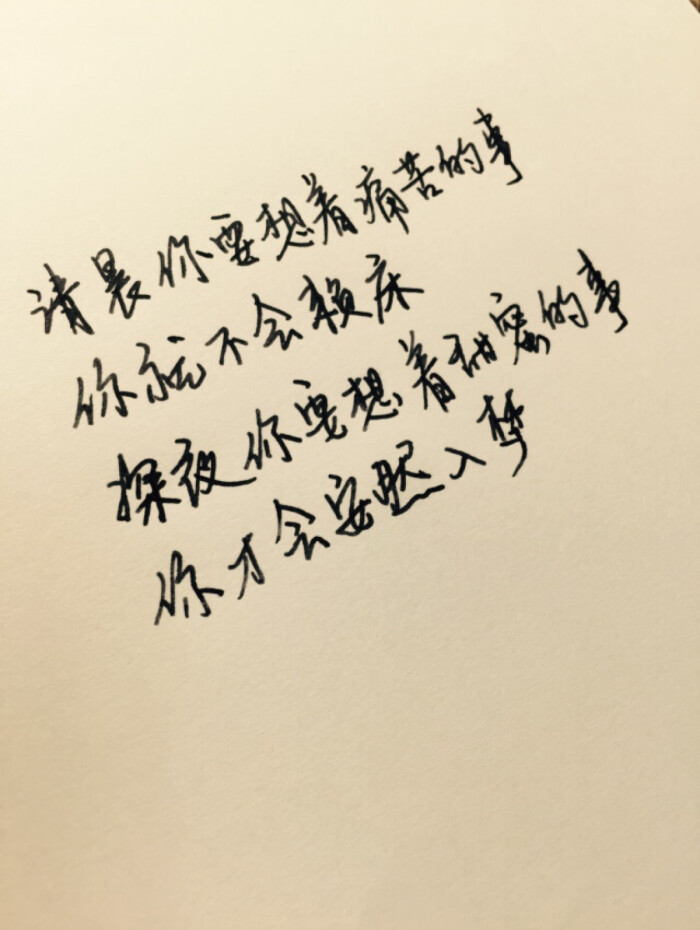 清晨你要想着痛苦的事
你就不会赖床
深夜你要想着甜蜜的事
你才会安然入梦